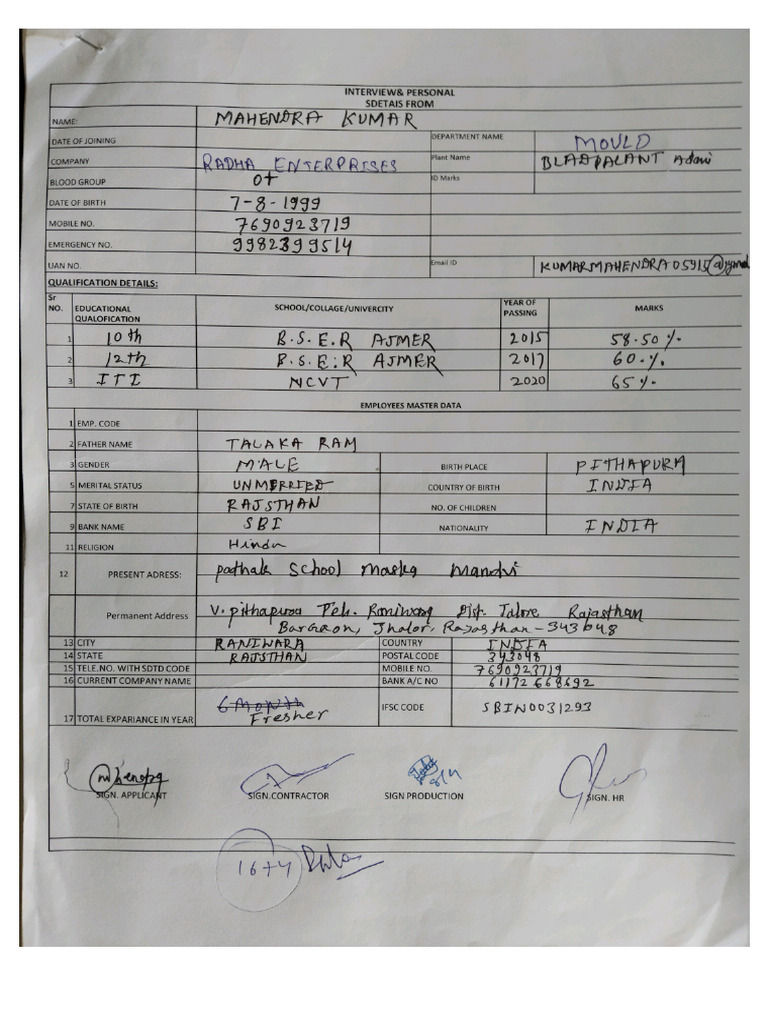 INTERVIEW& PERSONAL
SDETAIS FROM
NAME: MAHENDRA KUMAR
DATE OF JOINING DEPARTMENT NAME MOULD
COMPANY RADHA ENTERPRISES Plant Name BLADPALANT Adani
BLOOD GROUP O+ ID Marks
DATE OF BIRTH 7-8-1999
MOBILE NO. 7690923719
EMERGENCY NO. 9982399514
UAN NO. Email ID KUMARMAHENDRA05915@
QUALIFICATION DETAILS:
Sr NO. EDUCATIONAL QUALOFICATION SCHOOL/COLLAGE/UNIVERCITY YEAR OF PASSING MARKS
1 10th B.S.E.R AJMER 2015 58.50%
2 12th B.S.E.R AJMER 2017 60.%
3 ITI NCVT 2020 65%
EMPLOYEES MASTER DATA
1 EMP. CODE
2 FATHER NAME TALAKA RAM
3 GENDER MALE BIRTH PLACE PITHAPURA
5 MERITAL STATUS UNMERRIED COUNTRY OF BIRTH INDIA
7 STATE OF BIRTH RAJSTHAN NO. OF CHILDREN
9 BANK NAME SBI NATIONALITY INDIA
11 RELIGION Hindu
12 PRESENT ADRESS: pathak School Maska Mandvi
Permanent Address V. pithapura Teh. Raniwara Dist. Jalore Rajasthan
Bargaon, Jhalor, Rajasthan-343048
13 CITY RANIWARA COUNTRY INDIA
14 STATE RAJSTHAN POSTAL CODE 343048
15 TELE.NO. WITH SDTD CODE MOBILE NO. 7690923719
16 CURRENT COMPANY NAME BANK A/C NO 61172668692
17 TOTAL EXPARIANCE IN YEAR 6 Month Fresher IFSC CODE SBIN0031293
SIGN. APPLICANT SIGN.CONTRACTOR SIGN PRODUCTION SIGN. HR
16+4